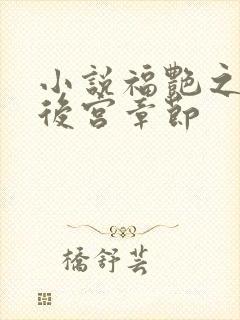 小說福艷之
後宮章節
橋舒芸